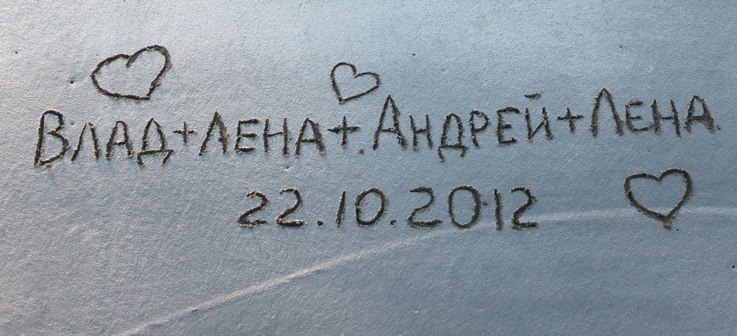 Влад+Лена+Андрей+Лена
22.10.2012